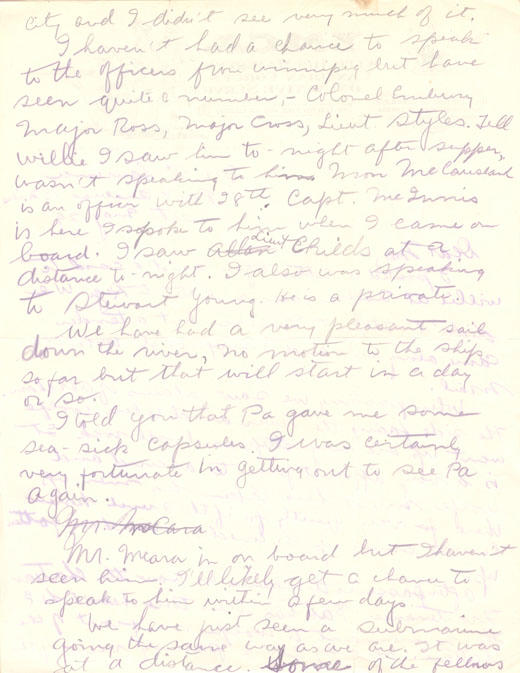 city and I didn't see very much of it.
I haven't had a chance to speak
to the officers from winnipeg but have
seen quite a number, - Colonel Embury
Major Ross, Major Cross, Lieut Styles. Tell
willie I saw him to-night after supper,
wasn't speaking to him. Mon McCausland
is an officer with 28th. Capt. McInnis
is here I spoke to him when I came on
board. I saw Allan Lieut Childs at a
distance to-night. I also was speaking
to Stewart Young. He is a private.
We have had a very pleasant sail
down the river, no motion to the ship
so far but that will start in a day
or so.
I told you that Pa gave me some
sea-sick capsules. I was certainly
very fortunate in getting out to see Pa
again.
Mr. McCara
Mr. Meara in on board but I haven't
seen him. I'll likely get a chance to
speak to him within a few days.
We have just seen a submarine
going the same way as we are. It was
at a distance. Some of the fellows